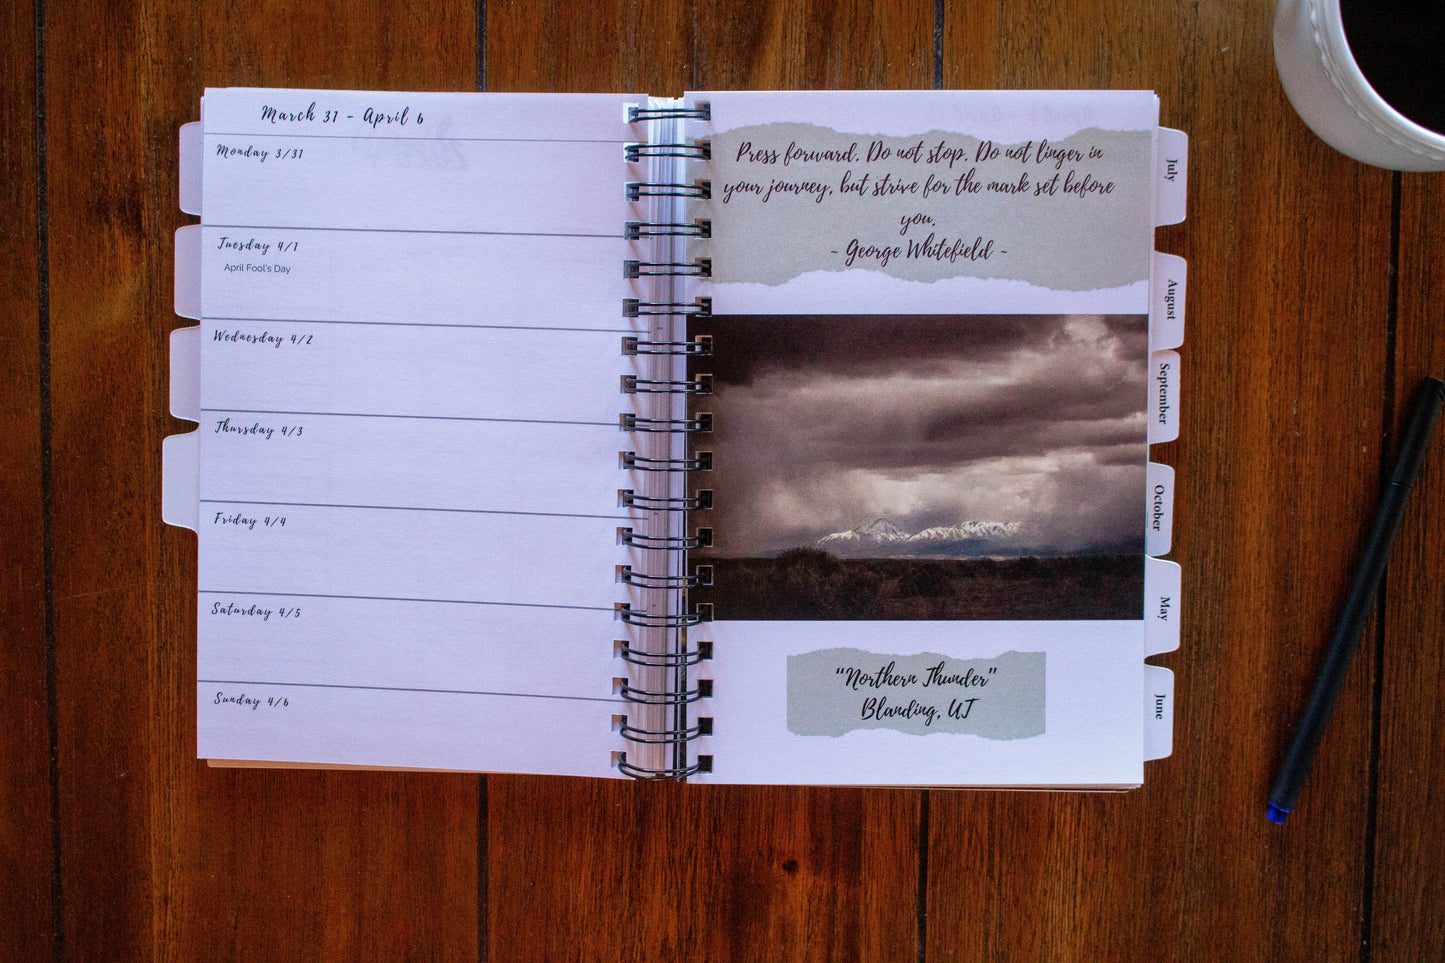 March 31 - April 6
Monday 3/31
Tuesday 4/1
April Fool's Day
Wednesday 4/2
Thursday 4/3
Friday 4/4
Saturday 4/5
Sunday 4/6
Press forward. Do not stop. Do not linger in
your journey, but strive for the mark set before
you.
~ George Whitefield ~
"Northern Thunder"
Blanding, UT
July
August
September
October
May
June